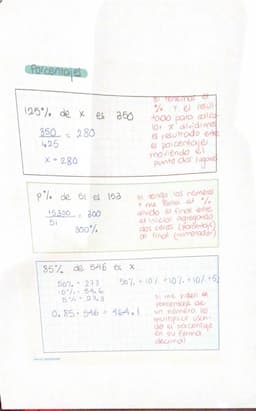 Porcentajes
125% de x es 350
350 = 280
1.25
x = 280
Si tenemos el
% y el resul-
tado para calcu-
lar x dividimos
el resultado entre
el porcentaje
moviendo el
punto dos lugares
P% de 51 es 153
15300 = 300
51
300%
si tengo los números
y me falta el %
divido el final entre
el inicial agregando
dos ceros (porcentaje)
al final (numerador)
85% de 546 es x
50% = 273
10% = 54.6
5% = 27.3
50% + 10% + 10% + 10% + 5%
0.85 · 546 = 464.1
si me piden el
porcentaje de
un número lo
multiplico usan-
do el porcentaje
en su forma
decimal